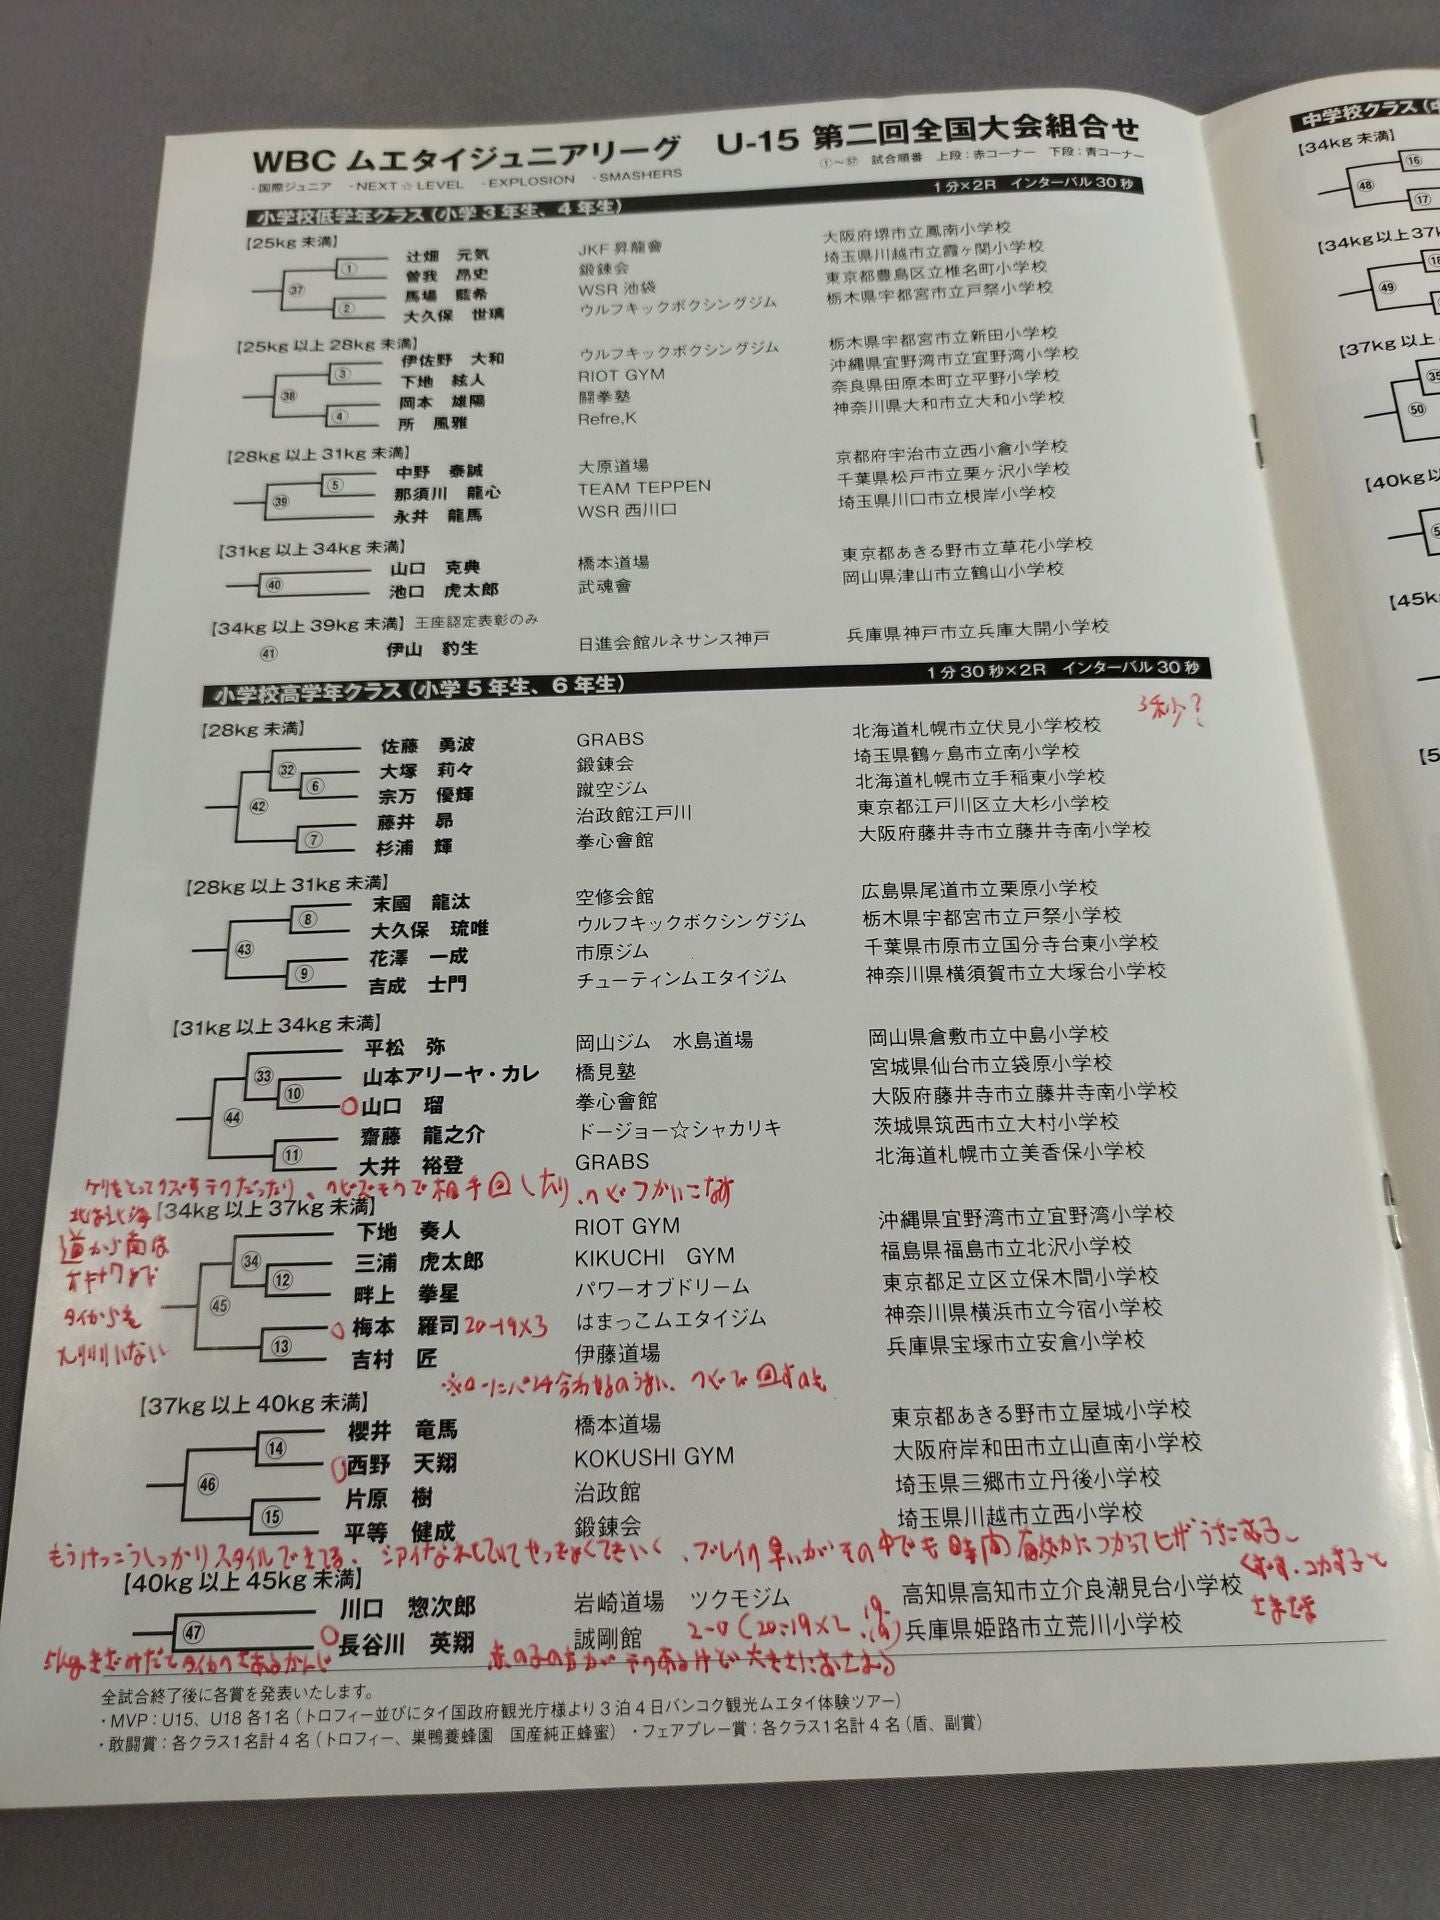 WBC ムエタイジュニアリーグ　U-15 第二回全国大会組合せ
・国際ジュニア　・NEXT☆LEVEL　・EXPLOSION　・SMASHERS　①〜㊼　試合順番　上段：赤コーナー　下段：青コーナー
小学校低学年クラス（小学3年生、4年生）　1分×2R　インターバル30秒
【25kg 未満】
辻畑　元気　JKF 昇龍會　大阪府堺市立鳳南小学校
㊲ ① 曽我　昂史　鍛錬会　埼玉県川越市立霞ヶ関小学校
馬場　藍希　WSR 池袋　東京都豊島区立椎名町小学校
② 大久保　世璃　ウルフキックボクシングジム　栃木県宇都宮市立戸祭小学校
【25kg 以上 28kg 未満】
伊佐野　大和　ウルフキックボクシングジム　栃木県宇都宮市立新田小学校
㊳ ③ 下地　絃人　RIOT GYM　沖縄県宜野湾市立宜野湾小学校
岡本　雄陽　闘拳塾　奈良県田原本町立平野小学校
④ 所　風雅　Refre,K　神奈川県大和市立大和小学校
【28kg 以上 31kg 未満】
中野　泰誠　大原道場　京都府宇治市立西小倉小学校
㊴ ⑤ 那須川　龍心　TEAM TEPPEN　千葉県松戸市立栗ヶ沢小学校
永井　龍馬　WSR 西川口　埼玉県川口市立根岸小学校
【31kg 以上 34kg 未満】
山口　克典　橋本道場　東京都あきる野市立草花小学校
㊵ 池口　虎太郎　武魂會　岡山県津山市立鶴山小学校
【34kg 以上 39kg 未満】王座認定表彰のみ
㊶ 伊山　豹生　日進会館ルネサンス神戸　兵庫県神戸市立兵庫大開小学校
小学校高学年クラス（小学5年生、6年生）　1分30秒×2R　インターバル30秒
3秒？
【28kg 未満】
佐藤　勇波　GRABS　北海道札幌市立伏見小学校校
㉜ 大塚　莉々　鍛錬会　埼玉県鶴ヶ島市立南小学校
㊷ ⑥ 宗万　優輝　蹴空ジム　北海道札幌市立手稲東小学校
藤井　昴　治政館江戸川　東京都江戸川区立大杉小学校
⑦ 杉浦　輝　拳心會館　大阪府藤井寺市立藤井寺南小学校
【28kg 以上 31kg 未満】
末國　龍汰　空修会館　広島県尾道市立栗原小学校
㊸ ⑧ 大久保　琉唯　ウルフキックボクシングジム　栃木県宇都宮市立戸祭小学校
花澤　一成　市原ジム　千葉県市原市立国分寺台東小学校
⑨ 吉成　士門　チューティンムエタイジム　神奈川県横須賀市立大塚台小学校
【31kg 以上 34kg 未満】
平松　弥　岡山ジム　水島道場　岡山県倉敷市立中島小学校
㉝ 山本アリーヤ・カレ　橋見塾　宮城県仙台市立袋原小学校
㊹ ⑩ 山口　瑠　拳心會館　大阪府藤井寺市立藤井寺南小学校
齋藤　龍之介　ドージョー☆シャカリキ　茨城県筑西市立大村小学校
⑪ 大井　裕登　GRABS　北海道札幌市立美香保小学校
【34kg 以上 37kg 未満】
下地　奏人　RIOT GYM　沖縄県宜野湾市立宜野湾小学校
㉞ 三浦　虎太郎　KIKUCHI　GYM　福島県福島市立北沢小学校
㊺ ⑫ 畔上　拳星　パワーオブドリーム　東京都足立区立保木間小学校
梅本　羅司 20-19×3　はまっこムエタイジム　神奈川県横浜市立今宿小学校
⑬ 吉村　匠　伊藤道場　兵庫県宝塚市立安倉小学校
北は北海
道から南は
オキナワまで
【37kg 以上 40kg 未満】
櫻井　竜馬　橋本道場　東京都あきる野市立屋城小学校
㊻ ⑭ 西野　天翔　KOKUSHI GYM　大阪府岸和田市立山直南小学校
片原　樹　治政館　埼玉県三郷市立丹後小学校
⑮ 平等　健成　鍛錬会　埼玉県川越市立西小学校
もうけっこうしっかりスタイルできてる、
【40kg 以上 45kg 未満】
川口　惣次郎　岩崎道場　ツクモジム　高知県高知市立介良潮見台小学校
㊼ 長谷川　英翔　誠剛館　兵庫県姫路市立荒川小学校
全試合終了後に各賞を発表いたします。
・MVP：U15、U18 各1名（トロフィー並びにタイ国政府観光庁様より3泊4日バンコク観光ムエタイ体験ツアー）
・敢闘賞：各クラス1名計4名（トロフィー、巣鴨養蜂園　国産純正蜂蜜）・フェアプレー賞：各クラス1名計4名（盾、副賞）
中学校クラス（中
【34kg 未満】
㊽ ⑯
⑰
【34kg 以上 37k
㊾ ⑱
【37kg 以上
㊿ ㉟
【40kg 以
【45k